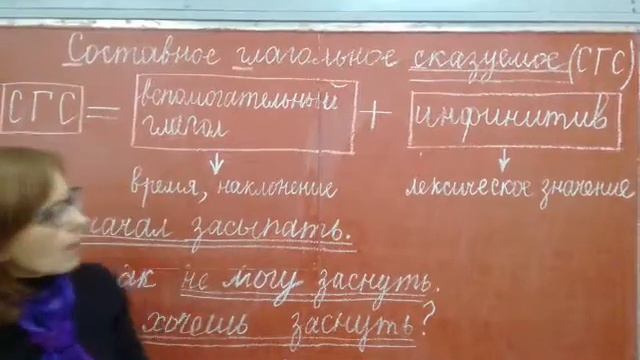 Составное глагольное сказуемое (СГС)
СГС = вспомогательный глагол + инфинитив
время, наклонение
лексическое значение
начал засыпать.
не могу заснуть.
хочешь заснуть?